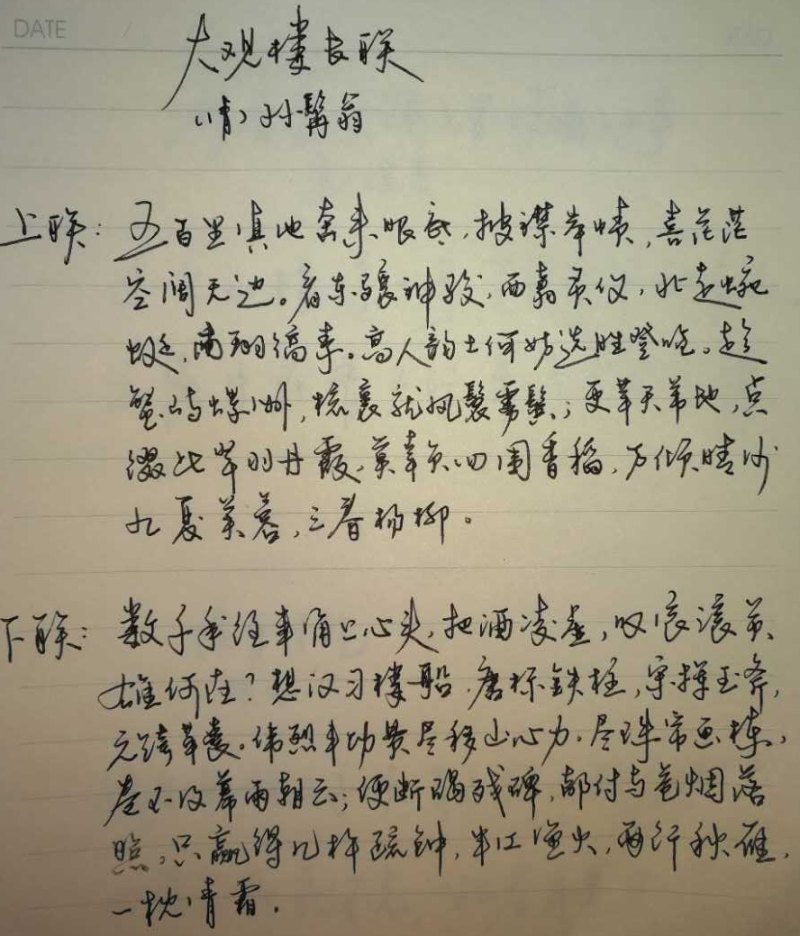 DATE /
大观楼长联
(清)孙髯翁
上联：五百里滇池奔来眼底，披襟岸帻，喜茫茫
空阔无边。看东骧神骏，西翥灵仪，北走蜿
蜒，南翔缟素。高人韵士何妨选胜登临。趁
蟹屿螺洲，梳裹就风鬟雾鬓；更苹天苇地，点
缀些翠羽丹霞，莫辜负四围香稻，万顷晴沙
九夏芙蓉，三春杨柳。
下联：数千年往事涌上心头，把酒凌虚，叹滚滚英
雄何在？想汉习楼船，唐标铁柱，宋挥玉斧，
元跨革囊。伟烈丰功费尽移山心力。尽珠帘画栋，
卷不及暮雨朝云；便断碣残碑，都付与苍烟落
照，只赢得几杵疏钟，半江渔火，两行秋雁，
一枕清霜。